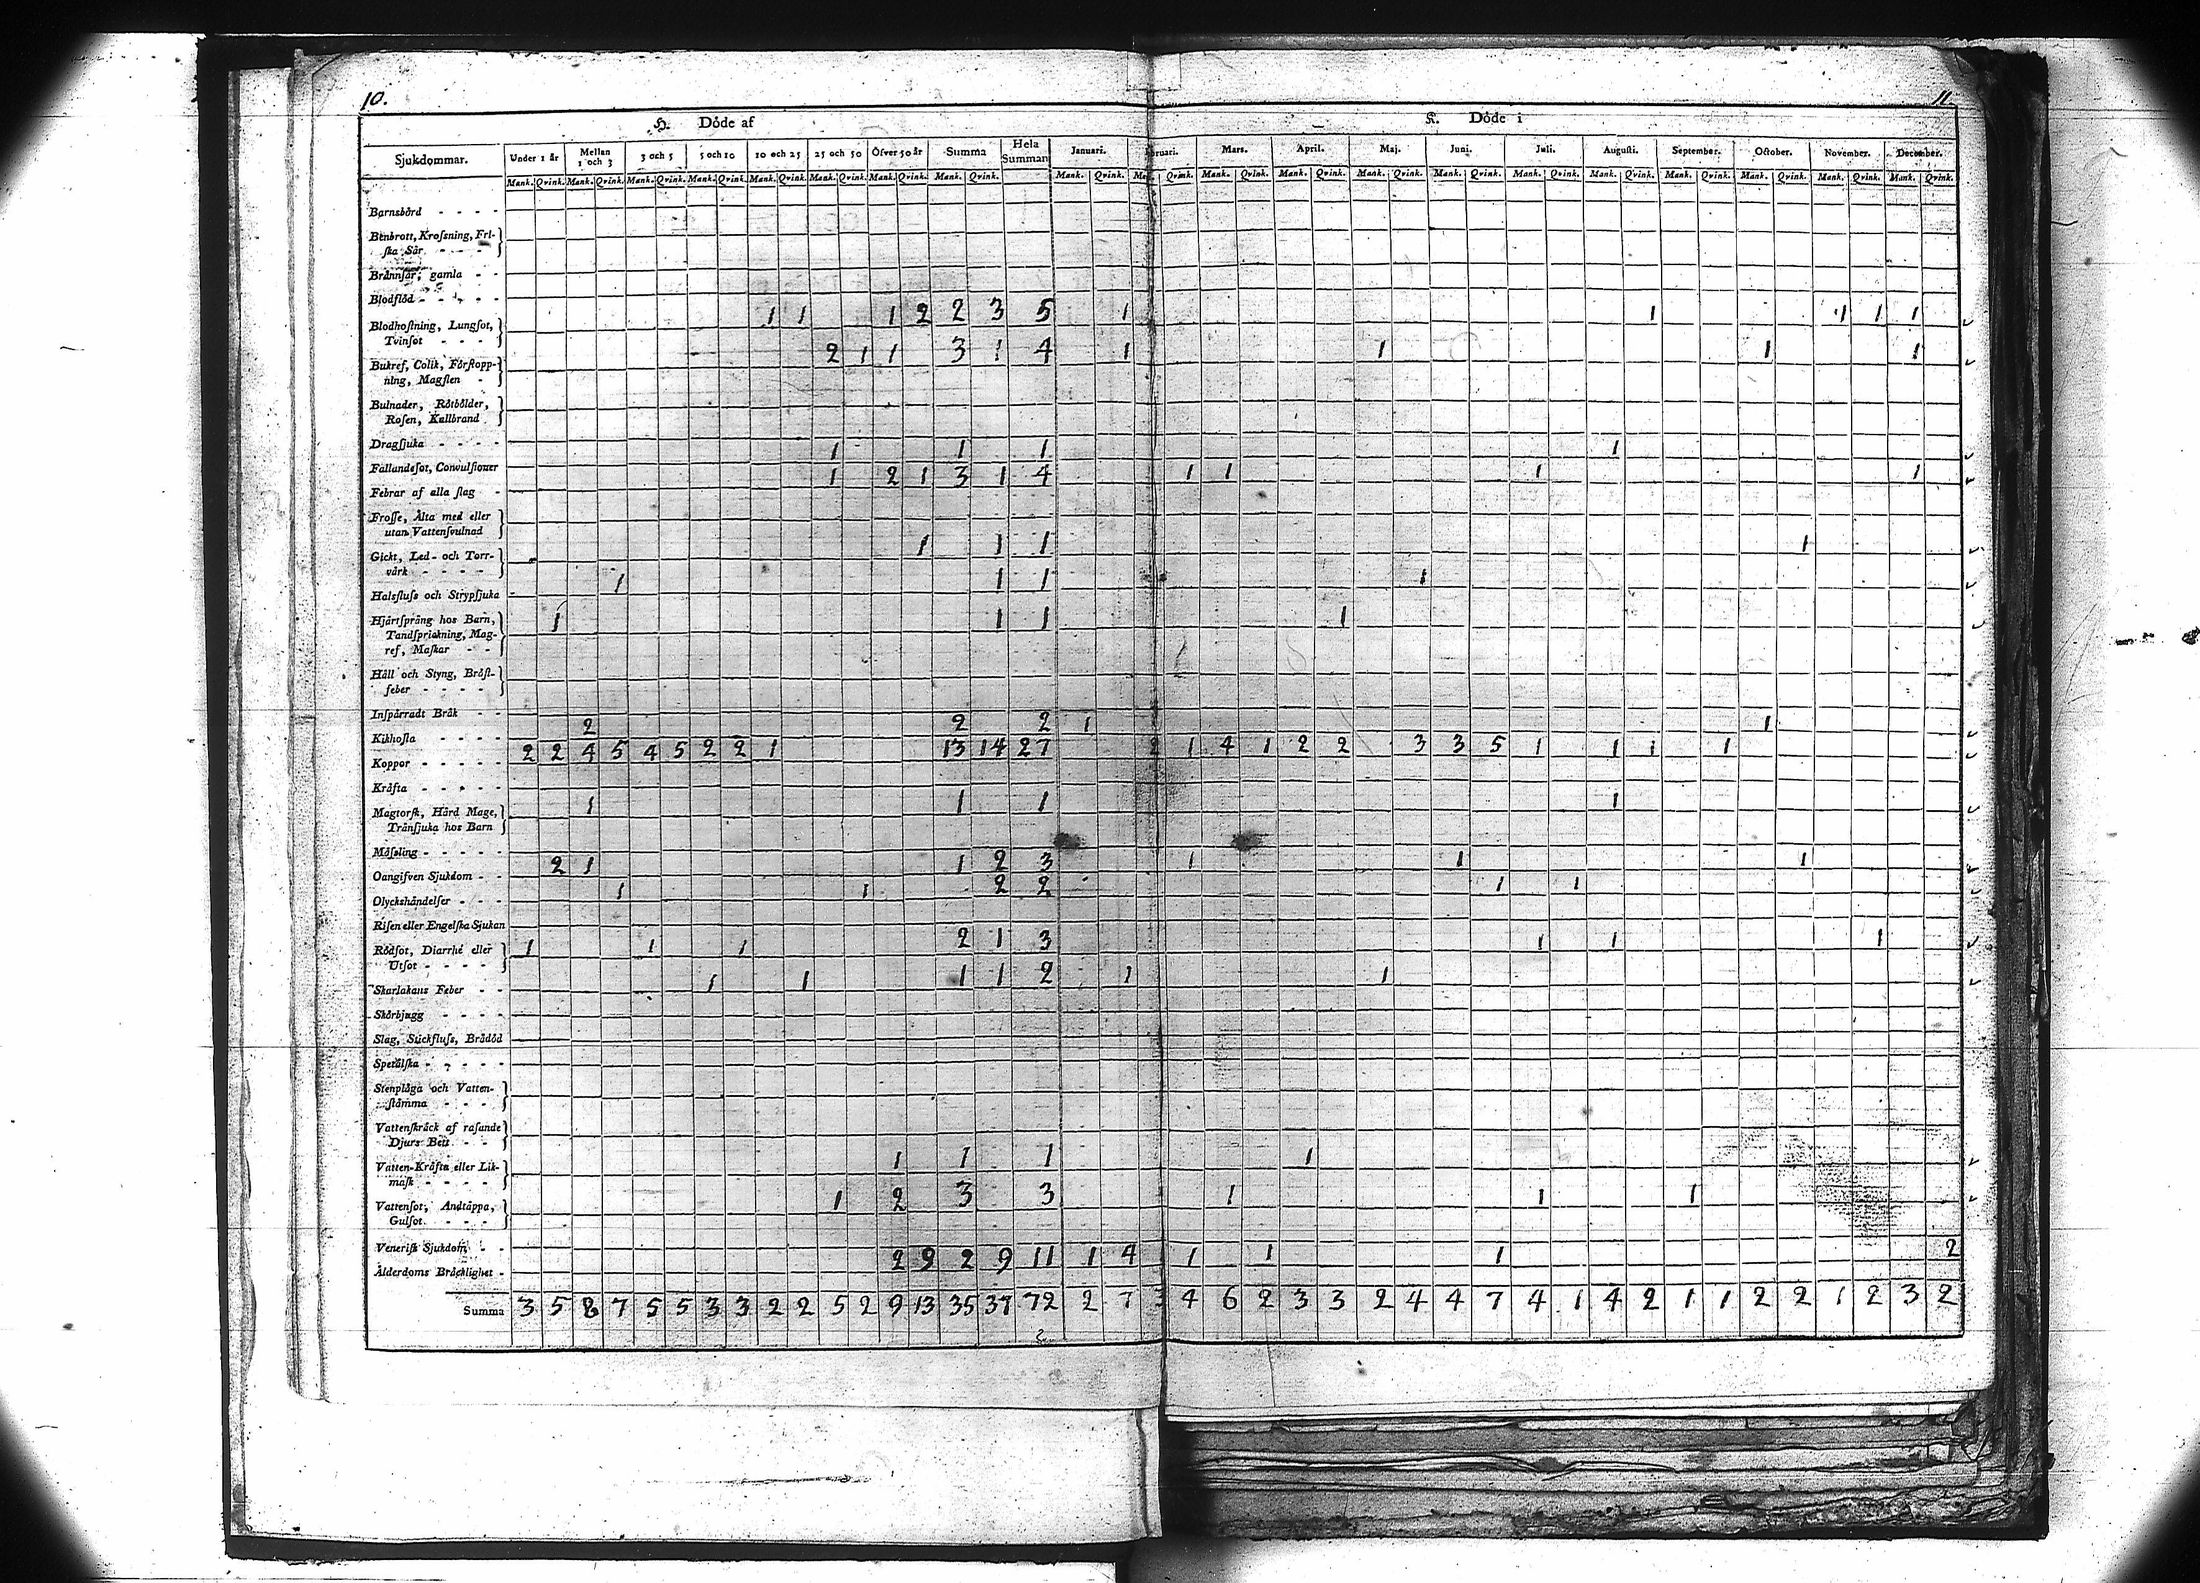 10.
11
H. Döde af
K. Döde i
Sjukdommar. Under 1 år Mellan 1 och 3 3 och 5 5 och 10 10 och 25 25 och 50 Öfver 50 år Summa Hela Summan Januari. bruari. Mars. April. Maj. Juni. Juli. Augusti. September. October. November. December.
Mank. Qvink. Mank. Qvink. Mank. Qvink. Mank. Qvink. Mank. Qvink. Mank. Qvink. Mank. Qvink. Mank. Qvink. Mank. Qvink. Qvink. Mank. Qvink. Mank. Qvink. Mank. Qvink. Mank. Qvink. Mank. Qvink. Mank. Qvink. Mank. Qvink. Mank. Qvink. Mank. Qvink. Mank. Qvink.
Barnsbörd - - - -
Benbrott, Krossning, Fri-
ska Sår - - - -
Brännsår, gamla - -
Blodflöd - - - - -
1 1 1 2 2 3 5 1 1 1 1 1
Blodhostning, Lungsot,
Tvinsot - - -
2 1 1 3 1 4 1 1 1 1
Bukref, Colik, Förstopp-
ning, Magsten -
Bulnader, Rötbölder,
Rosen, Kallbrand
Dragsjuka - - - -
1 1 1 1
Fallandesot, Convulsioner
1 2 1 3 1 4 1 1 1 1
Febrar af alla slag -
Frosse, Älta med eller
utan Vattensvulnad
1 1 1 1
Gickt, Led- och Torr-
värk - - - -
1 1 1 1
Halsfluss och Strypsjuka
Hjärtsprång hos Barn,
1 1 1 1
Tandsprickning, Mag-
ref, Maskar - -
Håll och Styng, Bröst-
feber - - - -
Inspärradt Bråk - -
2 2 2 1 1
Kikhosta - - - -
2 2 4 5 4 5 2 2 1 13 14 27 2 1 4 1 2 2 3 3 5 1 1 1 1
Koppor - - - - -
Kräfta - - - - -
1 1 1 1
Magtorsk, Hård Mage,
Trånsjuka hos Barn
Mässling - - - - -
2 1 1 2 3 1 1 1
Oangifven Sjukdom - -
1 1 2 2 1 1
Olyckshändelser - - -
Risen eller Engelska Sjukan
1 1 1 2 1 3 1 1 1
Rödsot, Diarrhé eller
Utsot - - - -
1 1 1 1 2 1 1
Skarlakans Feber - -
Skörbjugg - - - -
Slag, Stickfluss, Brådöd
Spetälska - - - - -
Stenplåga och Vatten-
stämma - - - -
Vattenskräck af rasande
Djurs Bett - -
1 1 1 1
Vatten-Kräfta eller Lik-
mask - - - -
1 2 3 3 1 1 1
Vattensot, Andtäppa,
Gulsot. - - -
Venerisk Sjukdom - -
2 9 2 9 11 1 4 1 1 1 2
Ålderdoms Bräcklighet -
Summa 3 5 8 7 5 5 3 3 2 2 5 2 9 13 35 37 72 2 7 3 4 6 2 3 3 2 4 4 7 4 1 4 2 1 1 2 2 1 2 3 2